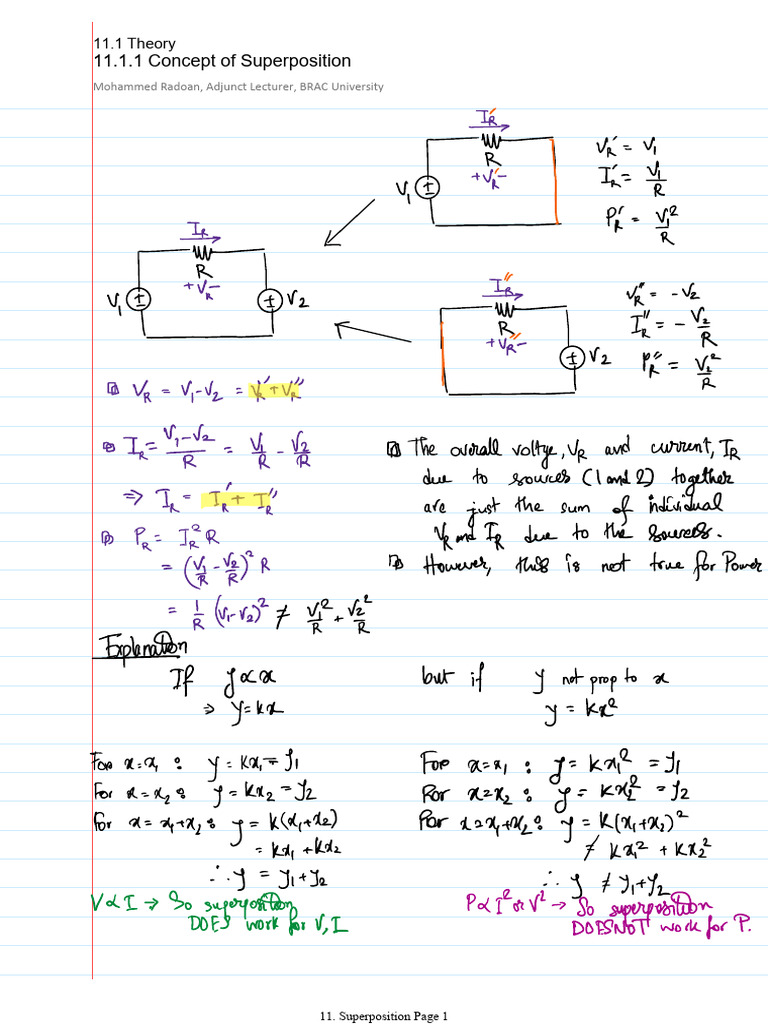 11.1 Theory
11.1.1 Concept of Superposition
Mohammed Radoan, Adjunct Lecturer, BRAC University
I_R'
R
+ V_R' -
V₁
V_R' = V₁
I_R' = V₁/R
P_R' = V₁²/R
I_R
R
+ V_R -
V₁
V₂
I_R''
R
+ V_R'' -
V₂
V_R'' = -V₂
I_R'' = - V₂/R
P_R'' = V₂²/R
V_R = V₁-V₂ = V_R' + V_R''
I_R = (V₁-V₂)/R = V₁/R - V₂/R
⇒ I_R = I_R' + I_R''
P_R = I_R² R
= (V₁/R - V₂/R)² R
= 1/R (V₁-V₂)² ≠ V₁²/R + V₂²/R
The overall voltge, V_R and current, I_R
due to sources (1 and 2) together
are just the sum of individual
V_R and I_R due to the sources.
However, this is not true for Power
Explanation
If y ∝ x
⇒ y = kx
For x = x₁ : y = kx₁ = y₁
For x = x₂ : y = kx₂ = y₂
For x = x₁+x₂ : y = k(x₁+x₂)
= kx₁ + kx₂
∴ y = y₁+y₂
V ∝ I → So superposition
DOES work for V, I
but if y not prop to x
y = kx²
For x = x₁ : y = kx₁² = y₁
For x = x₂ : y = kx₂² = y₂
For x = x₁+x₂ : y = k(x₁+x₂)²
≠ kx₁² + kx₂²
∴ y ≠ y₁+y₂
P ∝ I² or V² → So superposition
DOES NOT work for P.
11. Superposition Page 1